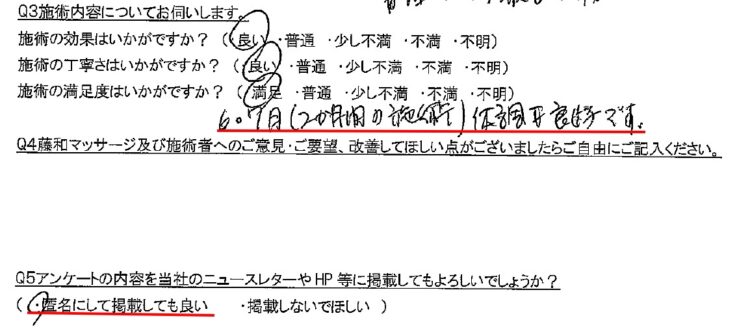 Q3施術内容についてお伺いします。
施術の効果はいかがですか？ （・良い ・普通 ・少し不満 ・不満 ・不明）
施術の丁寧さはいかがですか？ （・良い ・普通 ・少し不満 ・不満 ・不明）
施術の満足度はいかがですか？ （・満足 ・普通 ・少し不満 ・不満 ・不明）
6.7月(2か月間の施術)体調は良好です。
Q4藤和マッサージ及び施術者へのご意見・ご要望、改善してほしい点がございましたらご自由にご記入ください。
Q5アンケートの内容を当社のニュースレターやHP等に掲載してもよろしいでしょうか？
（・匿名にして掲載しても良い ・掲載しないでほしい ）